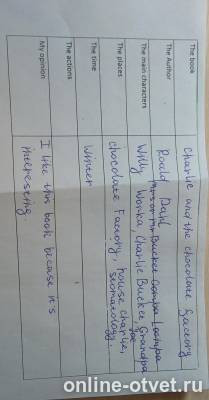 The book
Charlie and the chocolate factory
The Author
Roald Dahl
The main characters
Mrs or Mr Bucket Oompa Loompa
Willy Wonka, Charlie Bucket Grandpa
Joe
The places
chocolate factory, house Charlie,
stomatology.
The time
Winter
The actions
My opinion
I like this book becase it's
interesting
online-otvet.ru